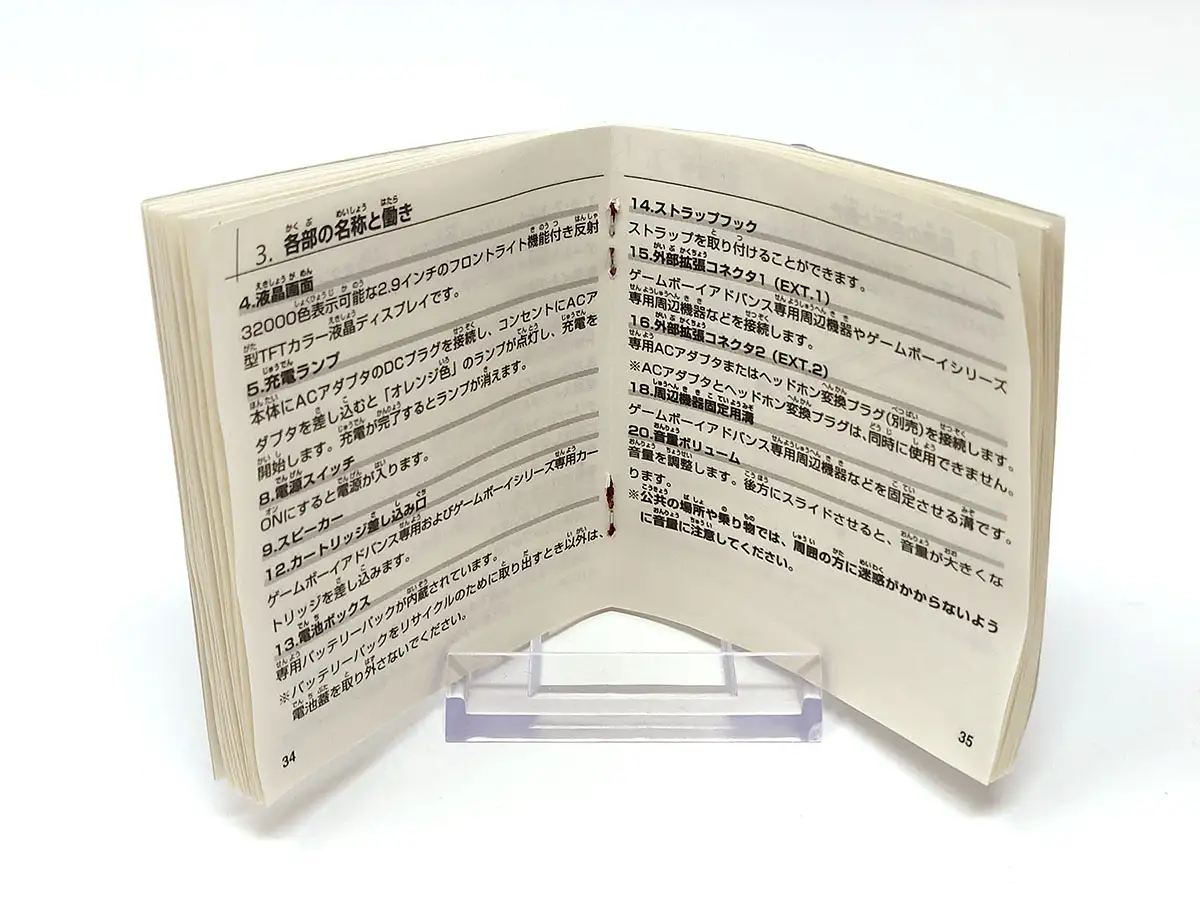 3. 各部の名称と働き
4.液晶画面
32000色表示可能な2.9インチのフロントライト機能付き反射
型TFTカラー液晶ディスプレイです。
5.充電ランプ
本体にACアダプタのDCプラグを接続し、コンセントにACア
ダプタを差し込むと「オレンジ色」のランプが点灯し、充電を
開始します。充電が完了するとランプが消えます。
8.電源スイッチ
ONにすると電源が入ります。
9.スピーカー
12.カートリッジ差し込み口
ゲームボーイアドバンス専用およびゲームボーイシリーズ専用カー
トリッジを差し込みます。
13.電池ボックス
専用バッテリーパックが内蔵されています。
※バッテリーパックをリサイクルのために取り出すとき以外は、
電池蓋を取り外さないでください。
34
14.ストラップフック
ストラップを取り付けることができます。
15.外部拡張コネクタ1 (EXT.1)
ゲームボーイアドバンス専用周辺機器やゲームボーイシリーズ
専用周辺機器などを接続します。
16.外部拡張コネクタ2 (EXT.2)
専用ACアダプタまたはヘッドホン変換プラグ(別売)を接続します。
※ACアダプタとヘッドホン変換プラグは、同時に使用できません。
18.周辺機器固定用溝
ゲームボーイアドバンス専用周辺機器などを固定させる溝です。
20.音量ボリューム
音量を調整します。後方にスライドさせると、音量が大きくな
ります。
※公共の場所や乗り物では、周囲の方に迷惑がかからないよう
に音量に注意してください。
35